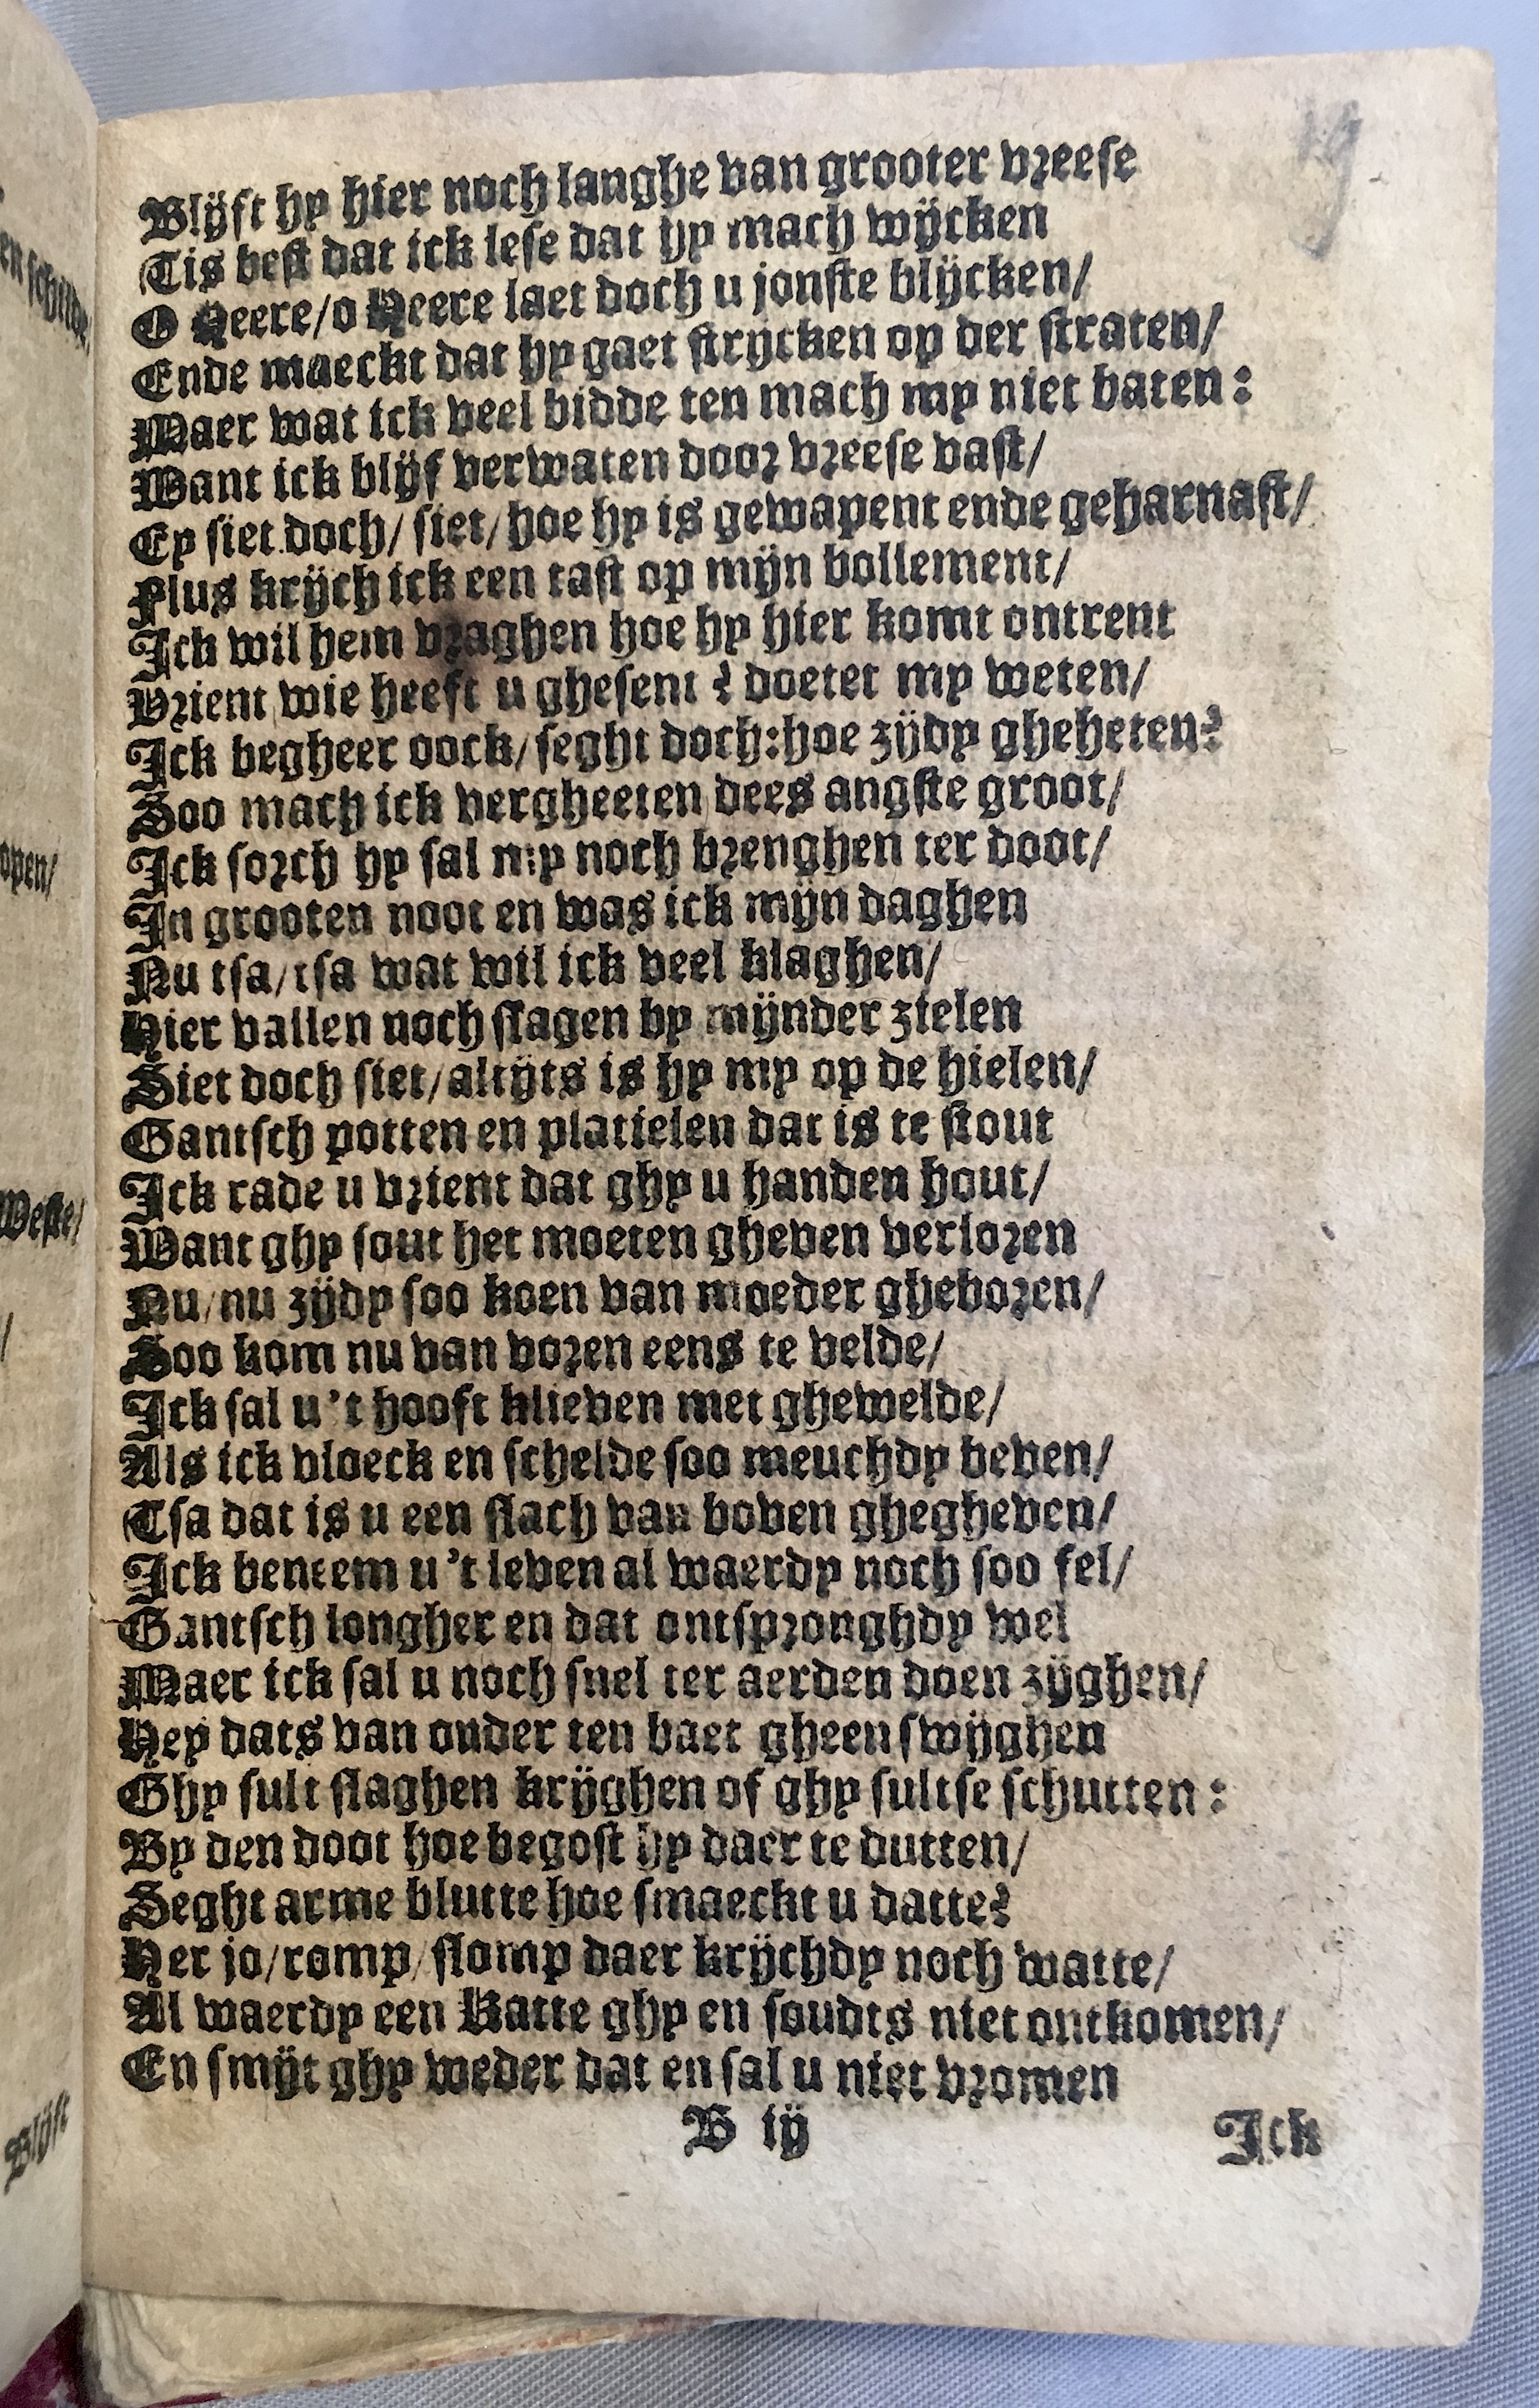 19
Blijft hy hier noch langhe van grooter vreese
Tis best dat ick lese dat hy mach wijcken
O Heere/o Heere laet doch u jonste blijcken/
Ende maeckt dat hy gaet strijcken op der straten/
Maer wat ick veel bidde ten mach my niet baten:
Want ick blijf verwaten door vreese vast/
Ey siet doch/ siet/ hoe hy is gewapent ende geharnast/
Flus krijch ick een tast op mijn bollement/
Ick wil hem vraghen hoe hy hier komt ontrent
Vrient wie heeft u ghesent? doetet my weten/
Ick begheer oock/ seght doch: hoe zijdy gheheten?
Soo mach ick vergheeten dees angste groot/
Ick sorch hy sal my noch brenghen ter doot/
In grooten noot en was ick mijn daghen
Nu tsa/tsa wat wil ick veel klaghen/
Hier vallen noch slagen by mijnder zielen
Siet doch siet/altijts is hy my op de hielen/
Gantsch potten en platielen dat is te stout
Ick rade u vrient dat ghy u handen hout/
Want ghy sout het moeten gheven verloren
Nu/nu zijdy soo koen van moeder gheboren/
Soo kom nu van voren eens te velde/
Ick sal u 't hooft klieven met ghewelde/
Als ick vloeck en schelde soo meuchdy beven/
Tsa dat is u een slach van boven ghegheven/
Ick beneem u 't leven al waerdy noch soo fel/
Gantsch longher en dat ontspronghdy wel
Maer ick sal u noch snel ter aerden doen zijghen/
Hey dats van onder ten baet gheen swijghen
Ghy sult slaghen krijghen of ghy sultse schutten:
By den doot hoe begost hy daer te dutten/
Seght arme blutte hoe smaeckt u datte?
Her jo/romp/slomp daer krijchdy noch watte/
Al waerdy een Katte ghy en soudts niet ontkomen/
En smijt ghy weder dat en sal u niet vromen
B iij
Ick
en schilde/
open/
Weste/
/
Blijft